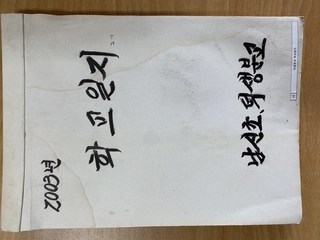 2003년
학교일지
남선초.되생분교